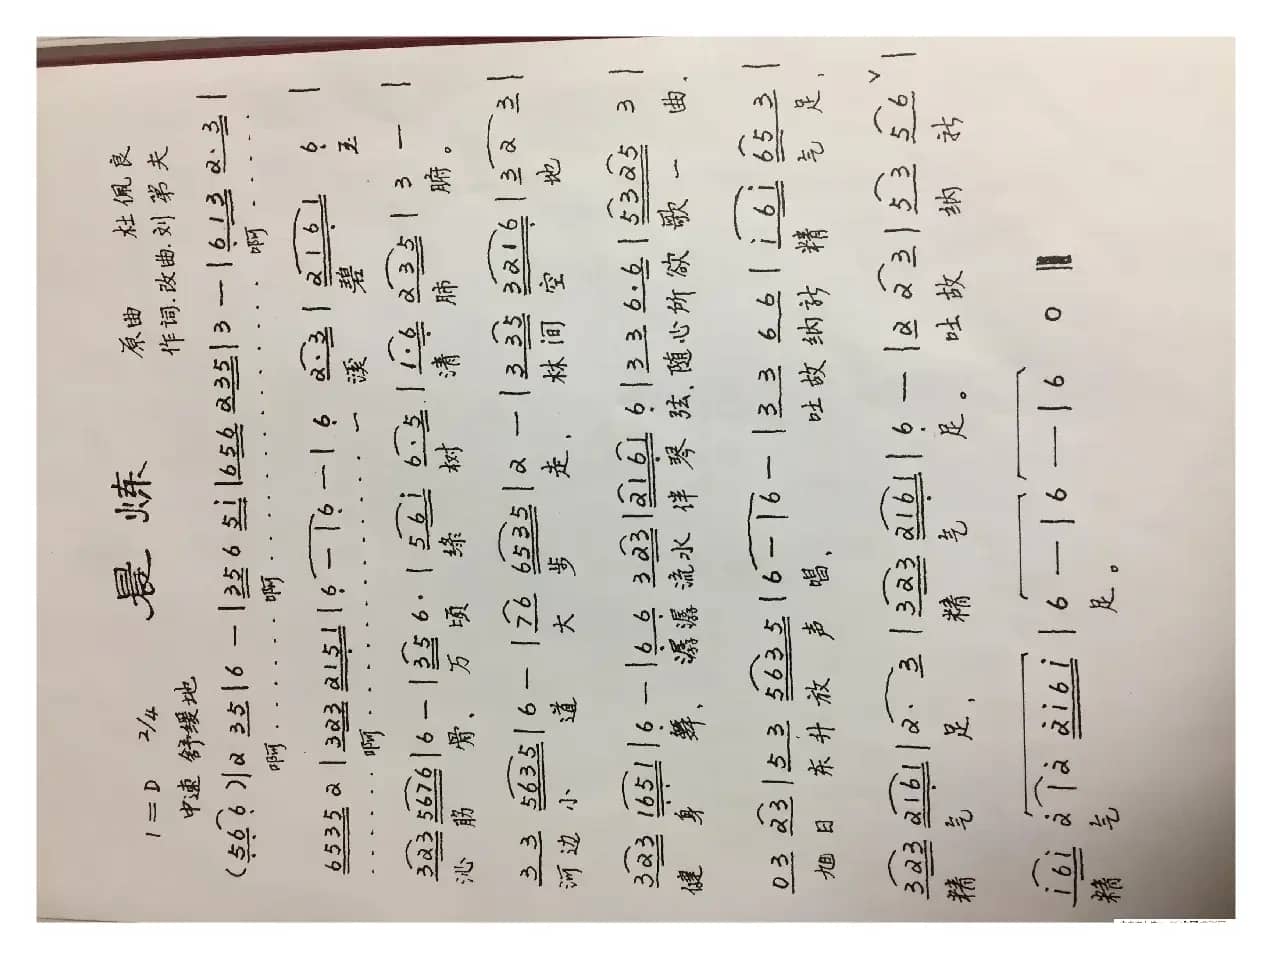 晨炼
原曲 杜佩良
1=D 2/4
作词.改曲.刘第夫
中速 舒缓地
(5 6 6) | 2 3 5 | 6 — | 3 5 6 5 i | 6 5 6 2 3 5 | 3 — | 6 1 3 2·3 |
啊..........啊..........啊......
6 5 3 5 2 | 3 2 3 2 1 5 1 | 6 — | 6 — | 6 2·3 | 2 1 6 1 6 |
......啊..........一 溪 碧 玉
3 2 3 5 6 7 6 | 6 — | 3 5 6· | 5 6 i 6·5 | 1·6 2 3 5 | 3 — |
沁 筋 骨、 万 顷 绿 树 清 肺 腑。
3 3 5 6 3 5 | 6 — | 7 6 6 5 3 5 | 2 — | 3 3 5 3 2 1 6 | 3 2 3 |
河边小 道 大 步 走、 林间空 地
3 2 3 1 6 5 1 | 6 — | 6 6 3 2 3 | 2 1 6 1 6 | 3 3 6·6 | 5 3 2 5 3 |
健 身 舞、 潺潺流水伴琴弦、随心所欲歌一曲.
0 3 2 3 | 5 3 5 6 3 5 | 6 — | 6 — | 3 3 6 6 | i 6 i 6 5 3 |
旭日东升放声唱、 吐故纳新精 气 足、
3 2 3 2 1 6 1 | 2· 3 | 3 2 3 2 1 6 1 | 6 — | 2 2 3 | 5 3 5 6 |
精 气 足、 精 气 足。 吐故 纳 新
i 6 i 2 | 2 2 i 6 i | 6 — | 6 — | 6 0 ‖
精 气 足。